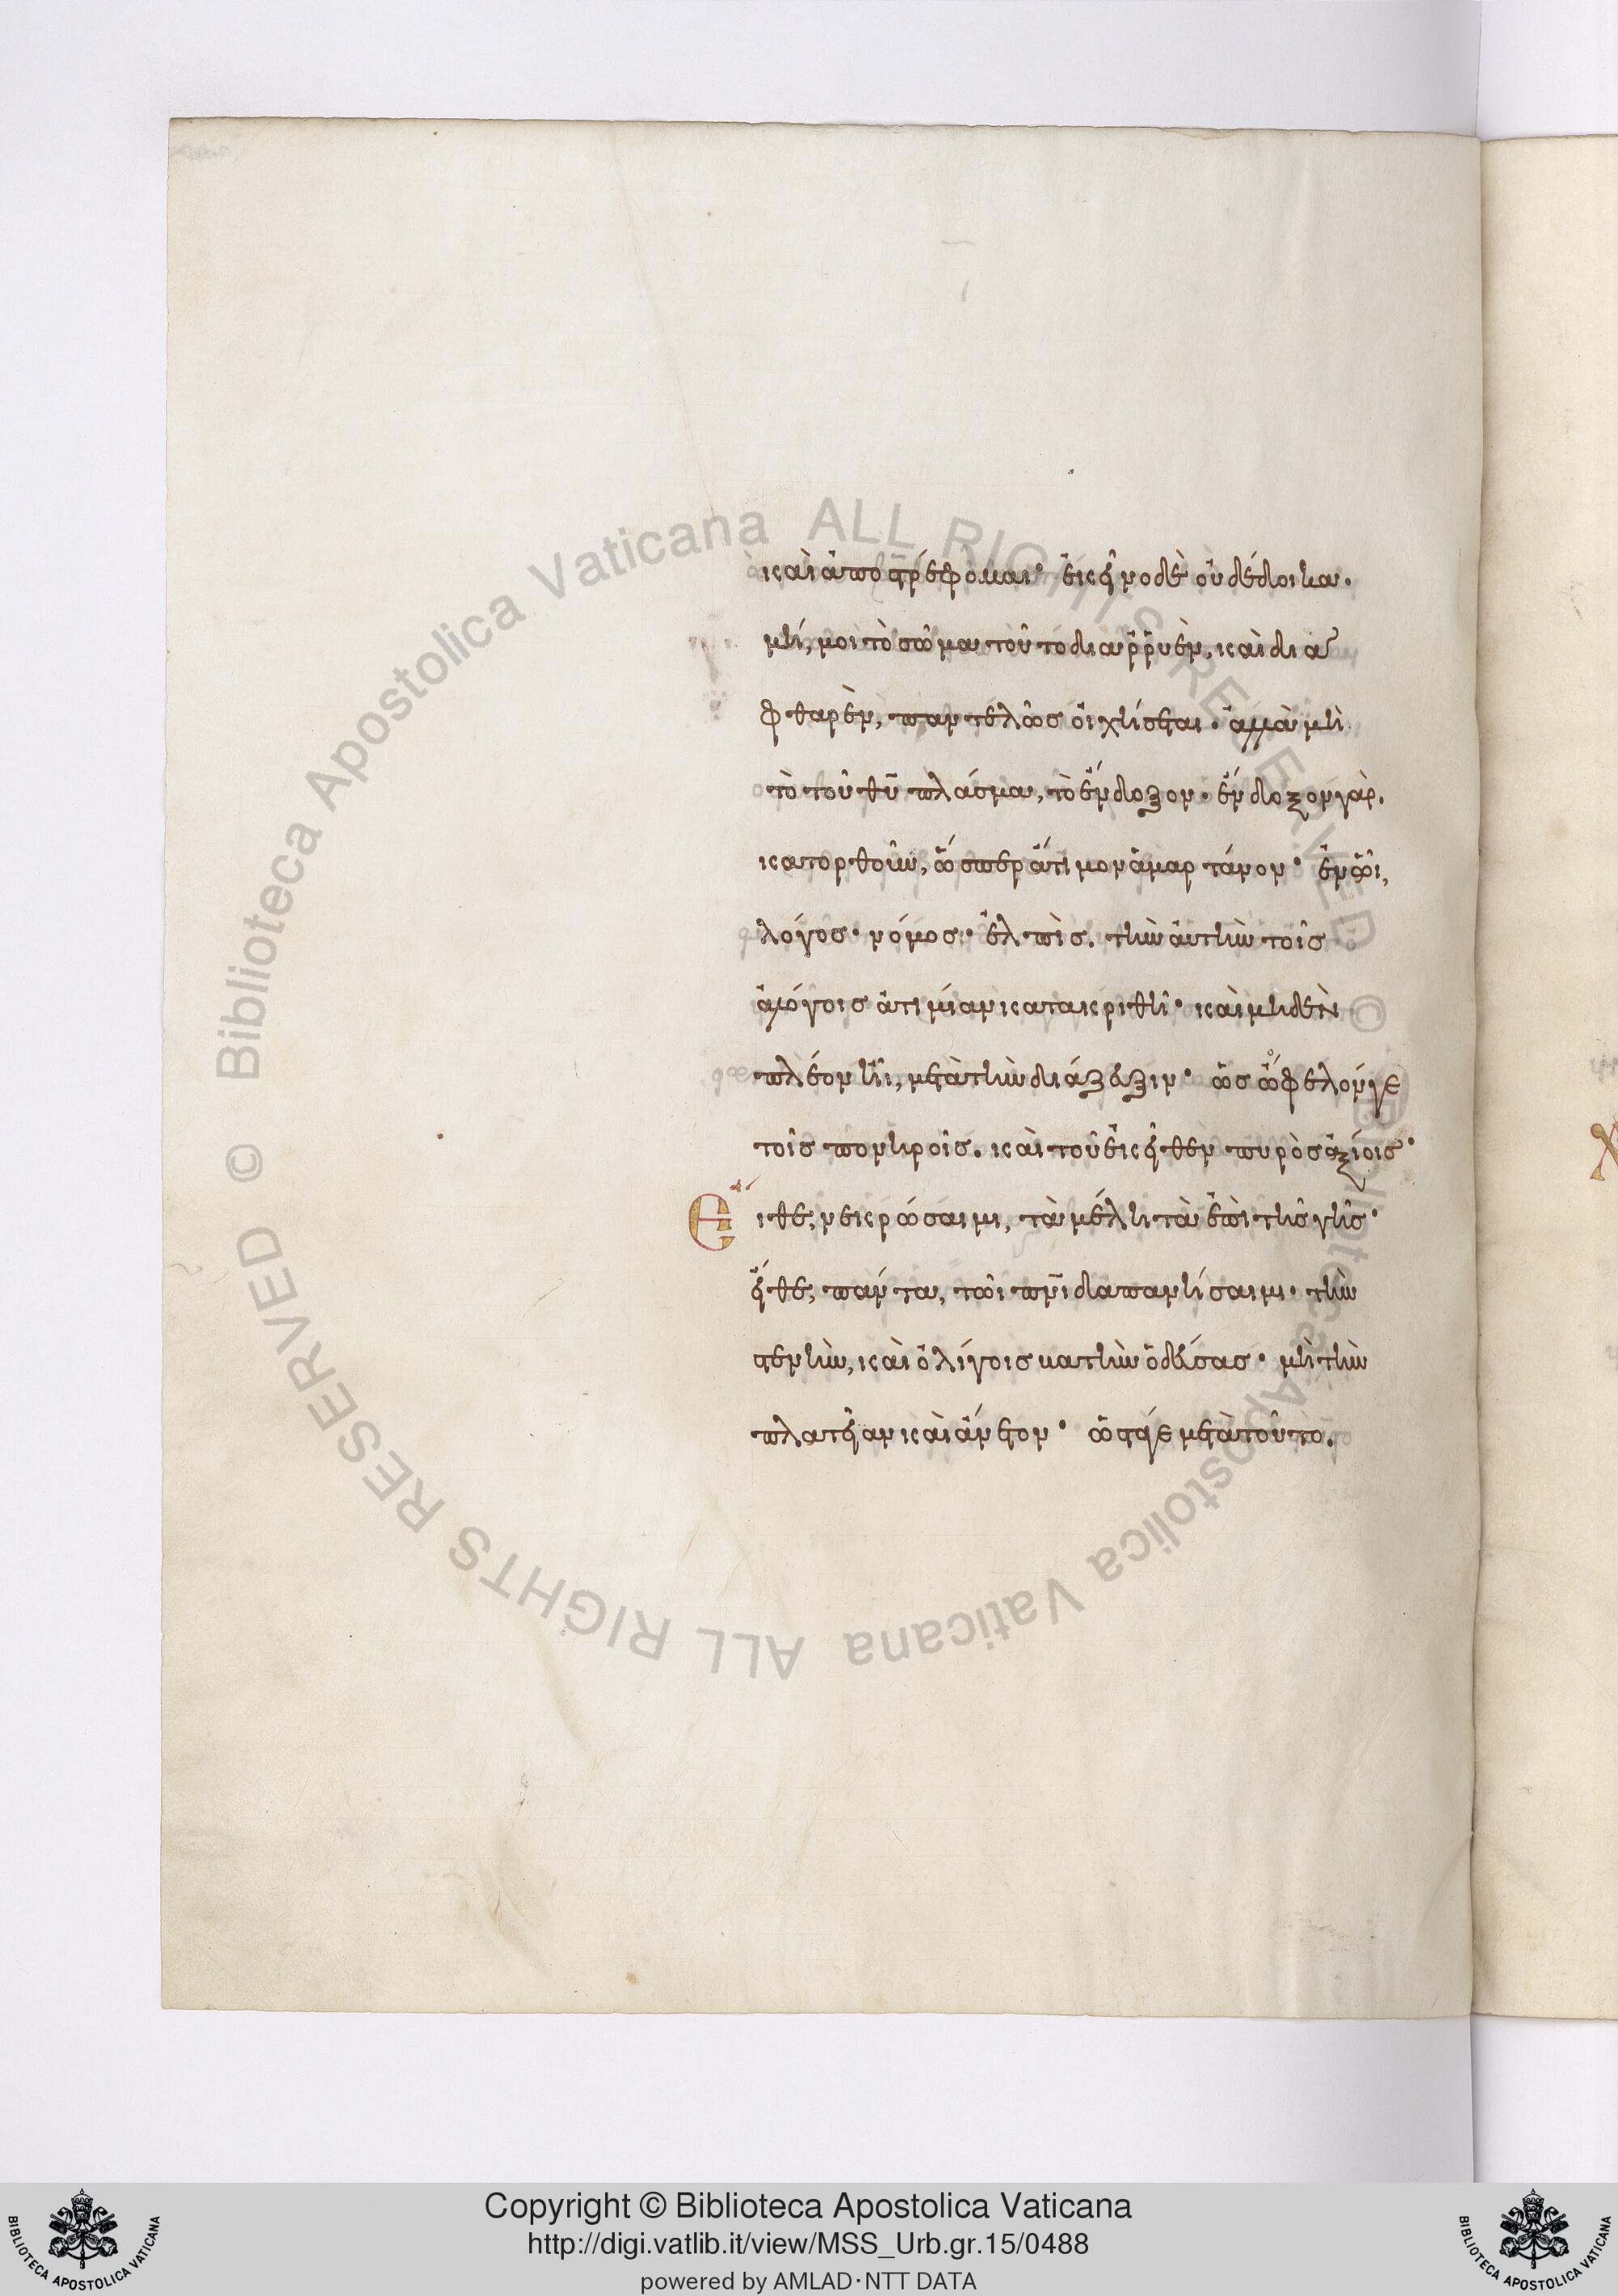 καὶ ἀποστρέφομαι· ἐκεῖνο δὲ οὐ δέδοικα.
μή, μοι τὸ σῶμα τοῦτο διαρρυὲν, καὶ δια
φθαρὲν, παντελῶς οἰχήσεται. ἀλλὰ μὴ
τὸ τοῦ θυ πλάσμα, τὸ ἔνδοξον. ἔνδοξον γὰρ.
κατορθοῦν, ὥσπερ ἄτιμον ἁμαρτάνον· ἐν ὧι,
λόγος· νόμος· ἐλπὶς. τὴν αὐτὴν τοῖς
ἀλόγοις ἀτιμίαν κατακριθῆ· καὶ μηδὲν
πλέον ἦι, μετὰ τὴν διάζευξιν· ὡς ὤφελόν γε
τοῖς πονηροῖς. καὶ τοῦ ἐκεῖθεν πυρὸς ἀξίοις·
Εἴθε, νεκρώσαιμι, τὰ μέλη τὰ ἐπὶ τῆς γῆς·
εἴθε, πάντα, τῶι πνι δαπανήσαιμι. τὴν
στενὴν, καὶ ὀλίγοις βατὴν ὁδεύσας· μὴ τὴν
πλατεῖαν καὶ ἄνετον· ὥς τά γε μετὰ τοῦτο.
Copyright © Biblioteca Apostolica Vaticana
http://digi.vatlib.it/view/MSS_Urb.gr.15/0488
powered by AMLAD·NTT DATA
BIBLIOTECA APOSTOLICA VATICANA
BIBLIOTECA APOSTOLICA VATICANA
Biblioteca Apostolica Vaticana ALL RIGHTS RESERVED ©
Biblioteca Apostolica Vaticana ALL RIGHTS RESERVED ©